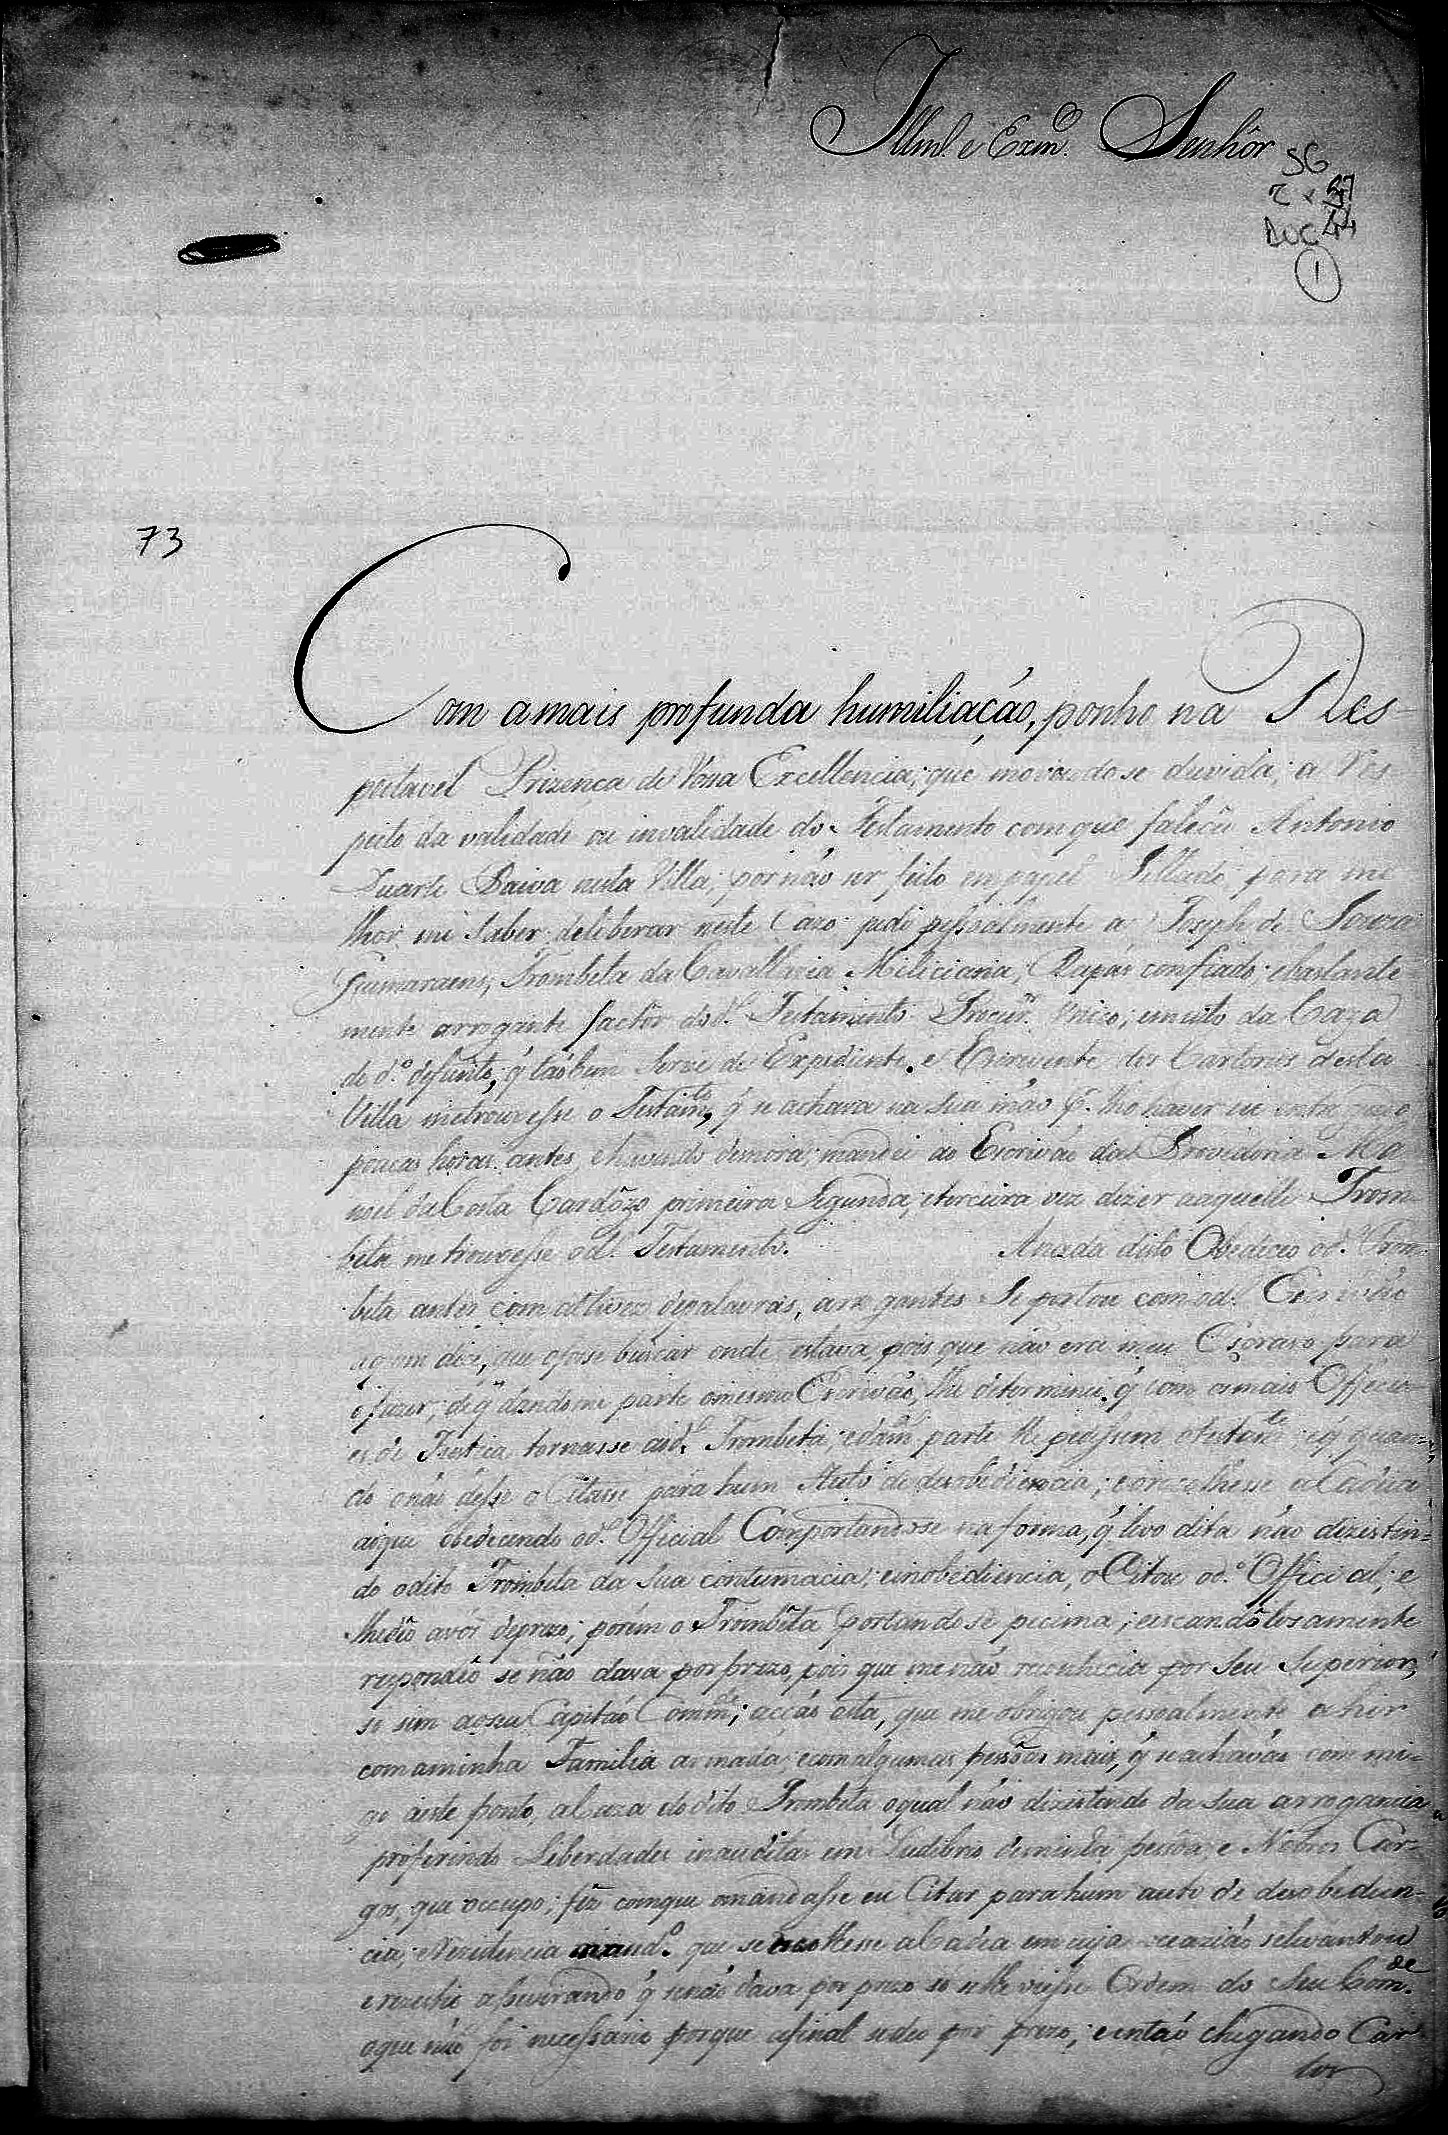 Illm.º e Exm.º Senhôr
SG
Doc 44
1
73
Com amais profunda humiliação, ponho na Res-
peitavel Prizença de Vossa Excellencia; que movendose duvida; a Res
peito da validade ou invalidade do Testamento comque faleceu Antonio
Duarte Paiva nesta Villa; por não ser feito em papel Sellado; para me
lhor me saber deliberar neste Cazo pedi pessoalmente a Joseph de Souza
Guimaraens, Trombeta da Cavallaria Miliciana, Rapás confiado; ebastante
mente arrogante factôr dod.º Testamento Procur.or da Caza
do d.º defunto, q̃ tãobem Serve de Expediente, e Escrevente dos Cartorios desta
Villa metrouvesse o Testam.to, q̃ se achava na sua mão p.r lho haver eu entregue
poucas horas antes, ehavendo demora, mandei ao Escrivão da Provedoria Ma
noel da Costa Cardôzo primeira Segunda, eterceira vez dizer aaquelle Trom
beta me trouvesse od.º Testamento. Anada disto Obedeceo od.º Trom
beta antes com altivez depalavras, arrogantes Se portou com od.º Escrivão
aquem dice, que ofosse buscar onde estava, pois que não era meu Escravo para
ofazer, de q̃ dandome parte omesmo Escrivão, lhe determinei q̃ com omais Officia
es de Justiça tornasse aod.º Trombeta, edam.ª parte lhe pedissem otestam.to eq̃ quan=
do onão désse o Citasse para hum Auto de desobediencia; erecolhesse aCadea
aque obedecendo od.º Official Comportandose naforma, q̃ levo dita não dizistin=
do odito Trombeta da Sua contumacia; einobediencia, oCitou od.º Official; e
lhedeo avós deprezo; porém o Trombeta portandose pecima; eescandolozamente
respondeo se não dava por prezo, pois que menão reconhecia por Seu Superior,
se sim aoseu Capitão Comm.de; acção esta, que me obrigou pessoalmente ahir
comaminha Familia armada, ecomalgumas pessôas mais, q̃ seachavão com mi=
go neste ponto, aCaza dodito Trombeta oqual não dizistindo da Sua arrogancia
proferindo Liberdades inauditas em Ludibrio deminha pessôa e Nobres Car-
gos, que occupo; fêz comque omandasse eu Citar parahum auto de desobedien-
cia, eRezidencia mand.º que serecolhesse aCadea emcuja ocazião selevantou
erezistio aseverando q̃ senão dava por prezo só selhe viesse Ordem do Seu Com.de
oque não foi necessario porque afinal sedeo por prezo; eentão chegando Car
los